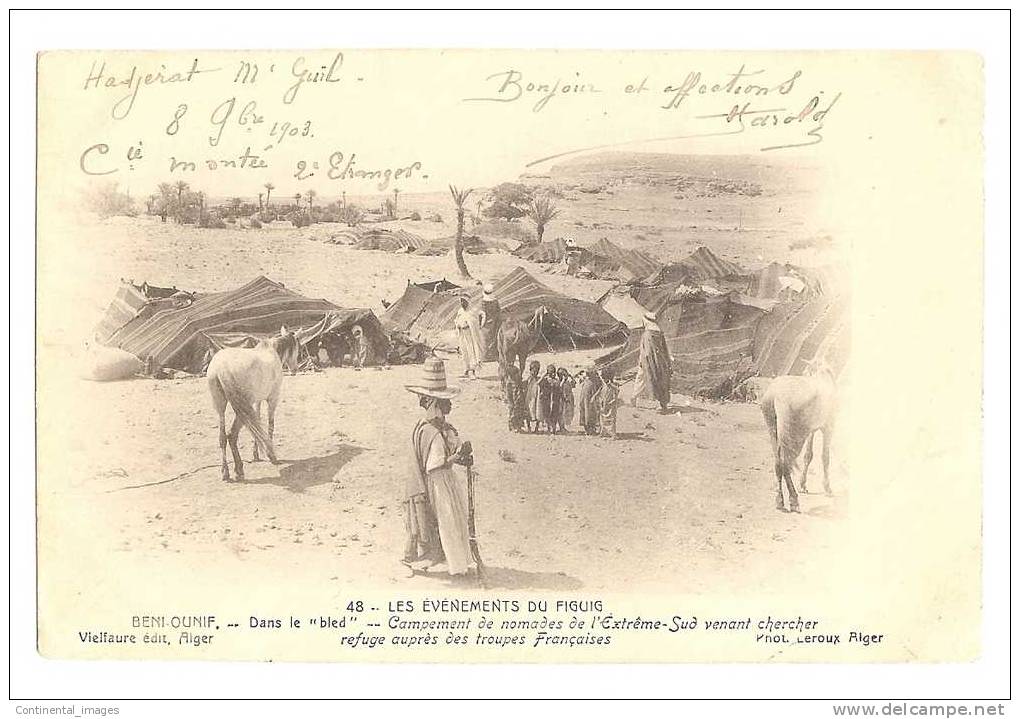 Hadjerat M' Guil - Bonjour et affections
8 9bre 1903. Harold
Cie montée 2e Etranger.
48 -- LES ÉVÉNEMENTS DU FIGUIG
BENI-OUNIF. -- Dans le "bled" -- Campement de nomades de l'Extrême-Sud venant chercher
refuge auprès des troupes Françaises
Vielfaure édit, Alger
Phot. Leroux Alger
Continental_images
www.delcampe.net